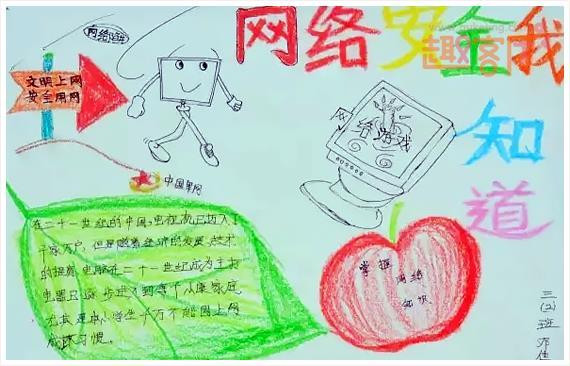 网络安全我
知
道
文明上网
安全用网
中国军网
网络游戏
在二十一世纪的中国,电视机已迈入了
千家万户,但是随着经济的发展,技术
的提高,电脑在二十一世纪成为主打
电器已逐步进入到看千从庭家庭
尤其是中小学生千万不能因上网
成坏习惯。
掌握
网络
知识
三
(2)
班
邓佳